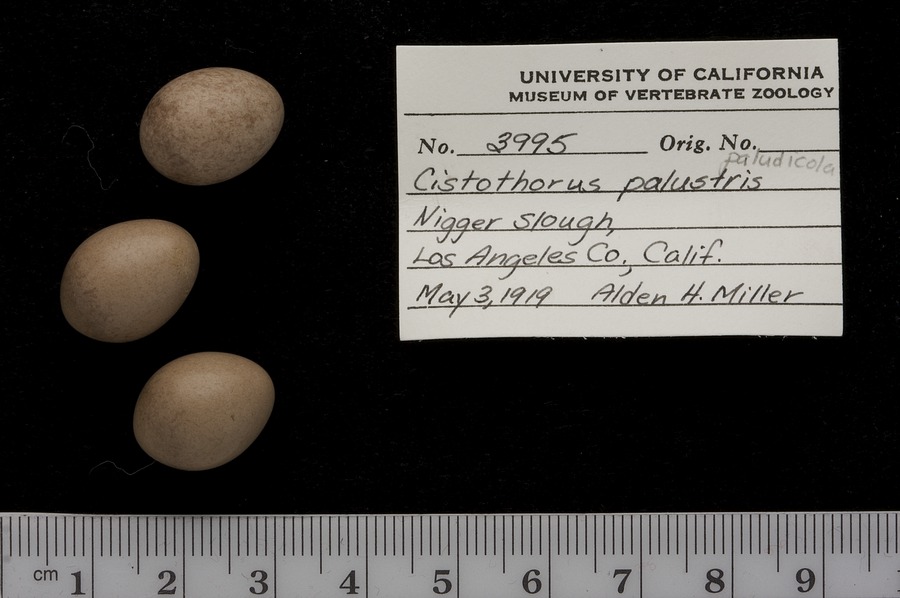 UNIVERSITY OF CALIFORNIA
MUSEUM OF VERTEBRATE ZOOLOGY
No. 3995 Orig. No.
paludicola
Cistothorus palustris
Nigger Slough,
Los Angeles Co., Calif.
May 3, 1919 Alden H. Miller
cm 1 2 3 4 5 6 7 8 9